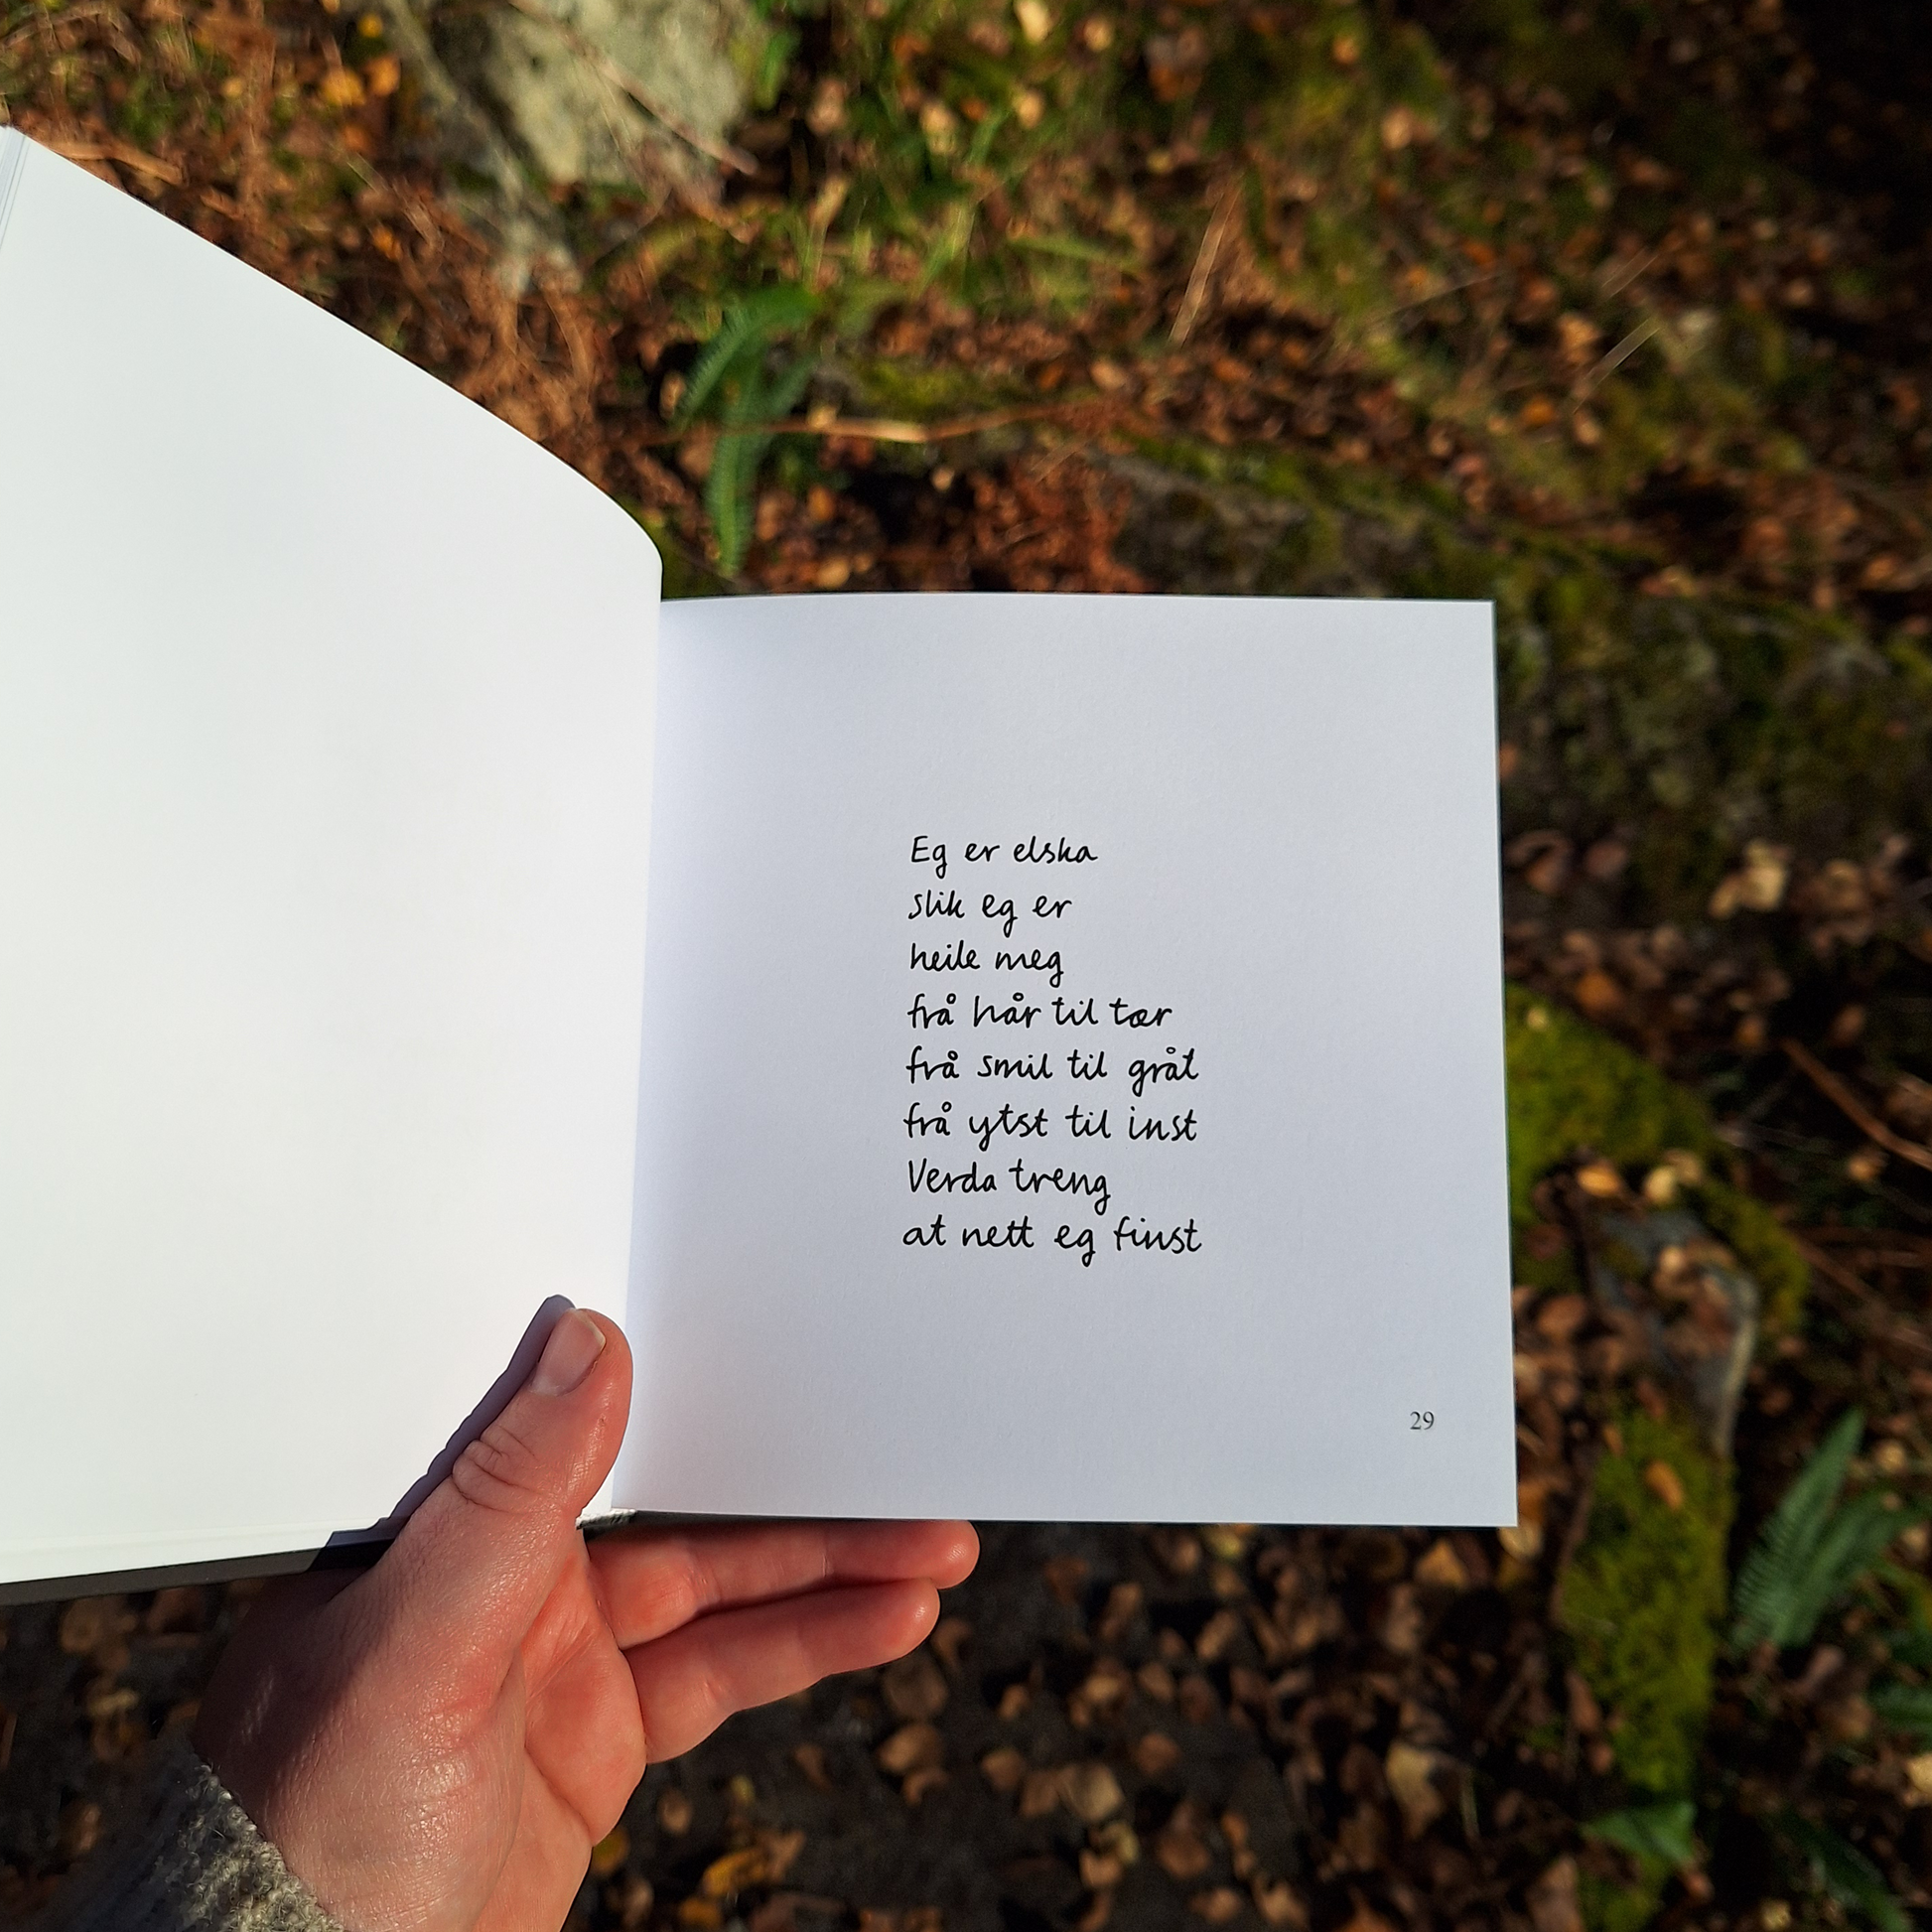 Eg er elska
slik eg er
heile meg
frå hår til tær
frå smil til gråt
frå ytst til inst
Verda treng
at nett eg finst
29